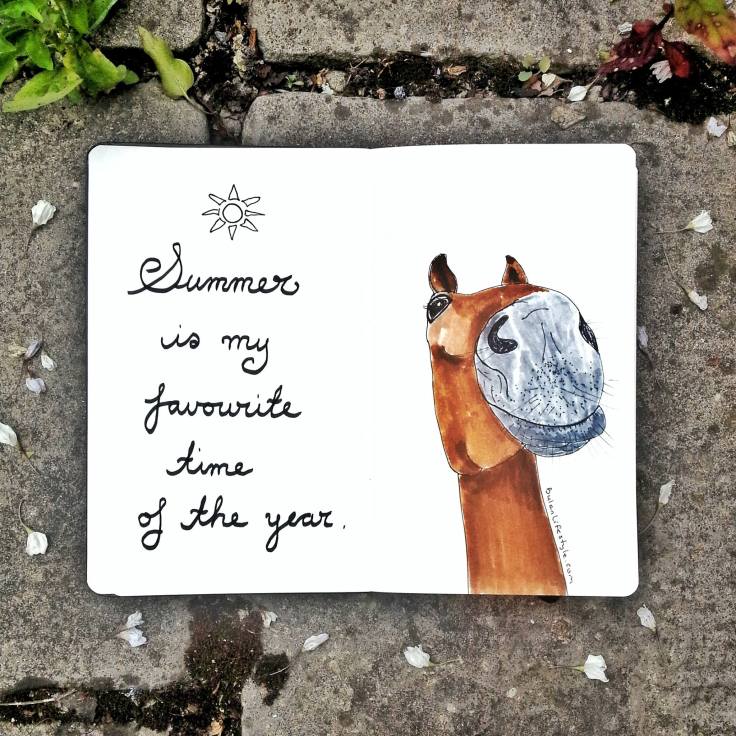 Summer
is my
favourite
time
of the year.
BulanLifestyle.com